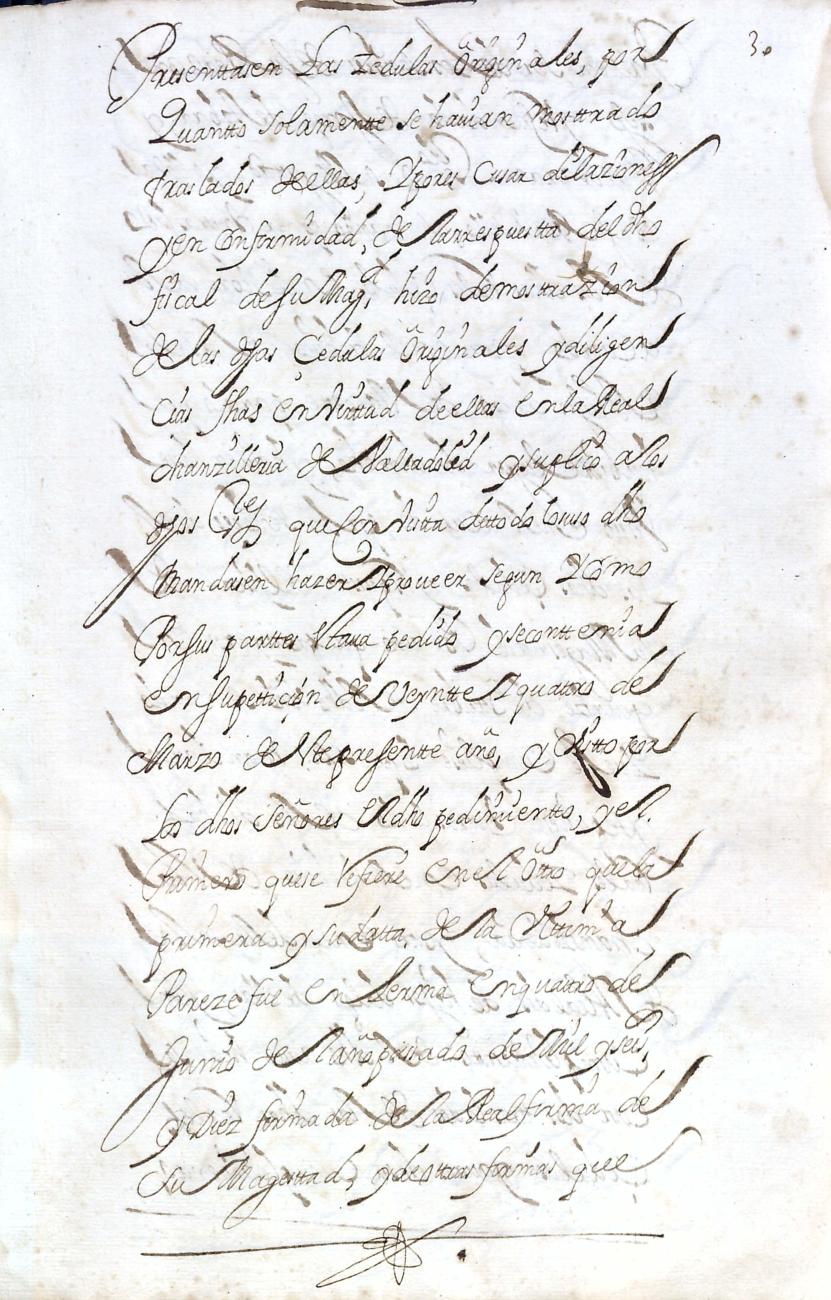 30
Presenttasen Las Zedulas Originales, por
Quantto solamentte se havian Mosttrado
traslados de ellas, Y por es Cusar delaziones
y en Conformidad, de la rrespuestta del dho
fiscal de su Magd, hizo demostrazion
de las dhas Cedulas Originales y diligen
cias fhas En Virttud de ellas en la Real
chanzilleria de Valladolid y suplico a los
dhos que Con Vistta de ttodo lo suso dho
Mandasen hazer Y proveer segun Y Como
Por sus parttes Estava pedido y se conttenia
en su petticion de Veyntte Y quatro de
Marzo de Este presentte año, y Vistto por
los dhos Señores El dho pedimientto, y el
Primero que se Refiere en el Otro que la
primera y su datta de la Ultima
Pareze fue en Lerma En quatro de
Junio de El año pasado de Mil y seis,
y Diez firmada de la Real firma de
Su Magesttad, y de ottras firmas que